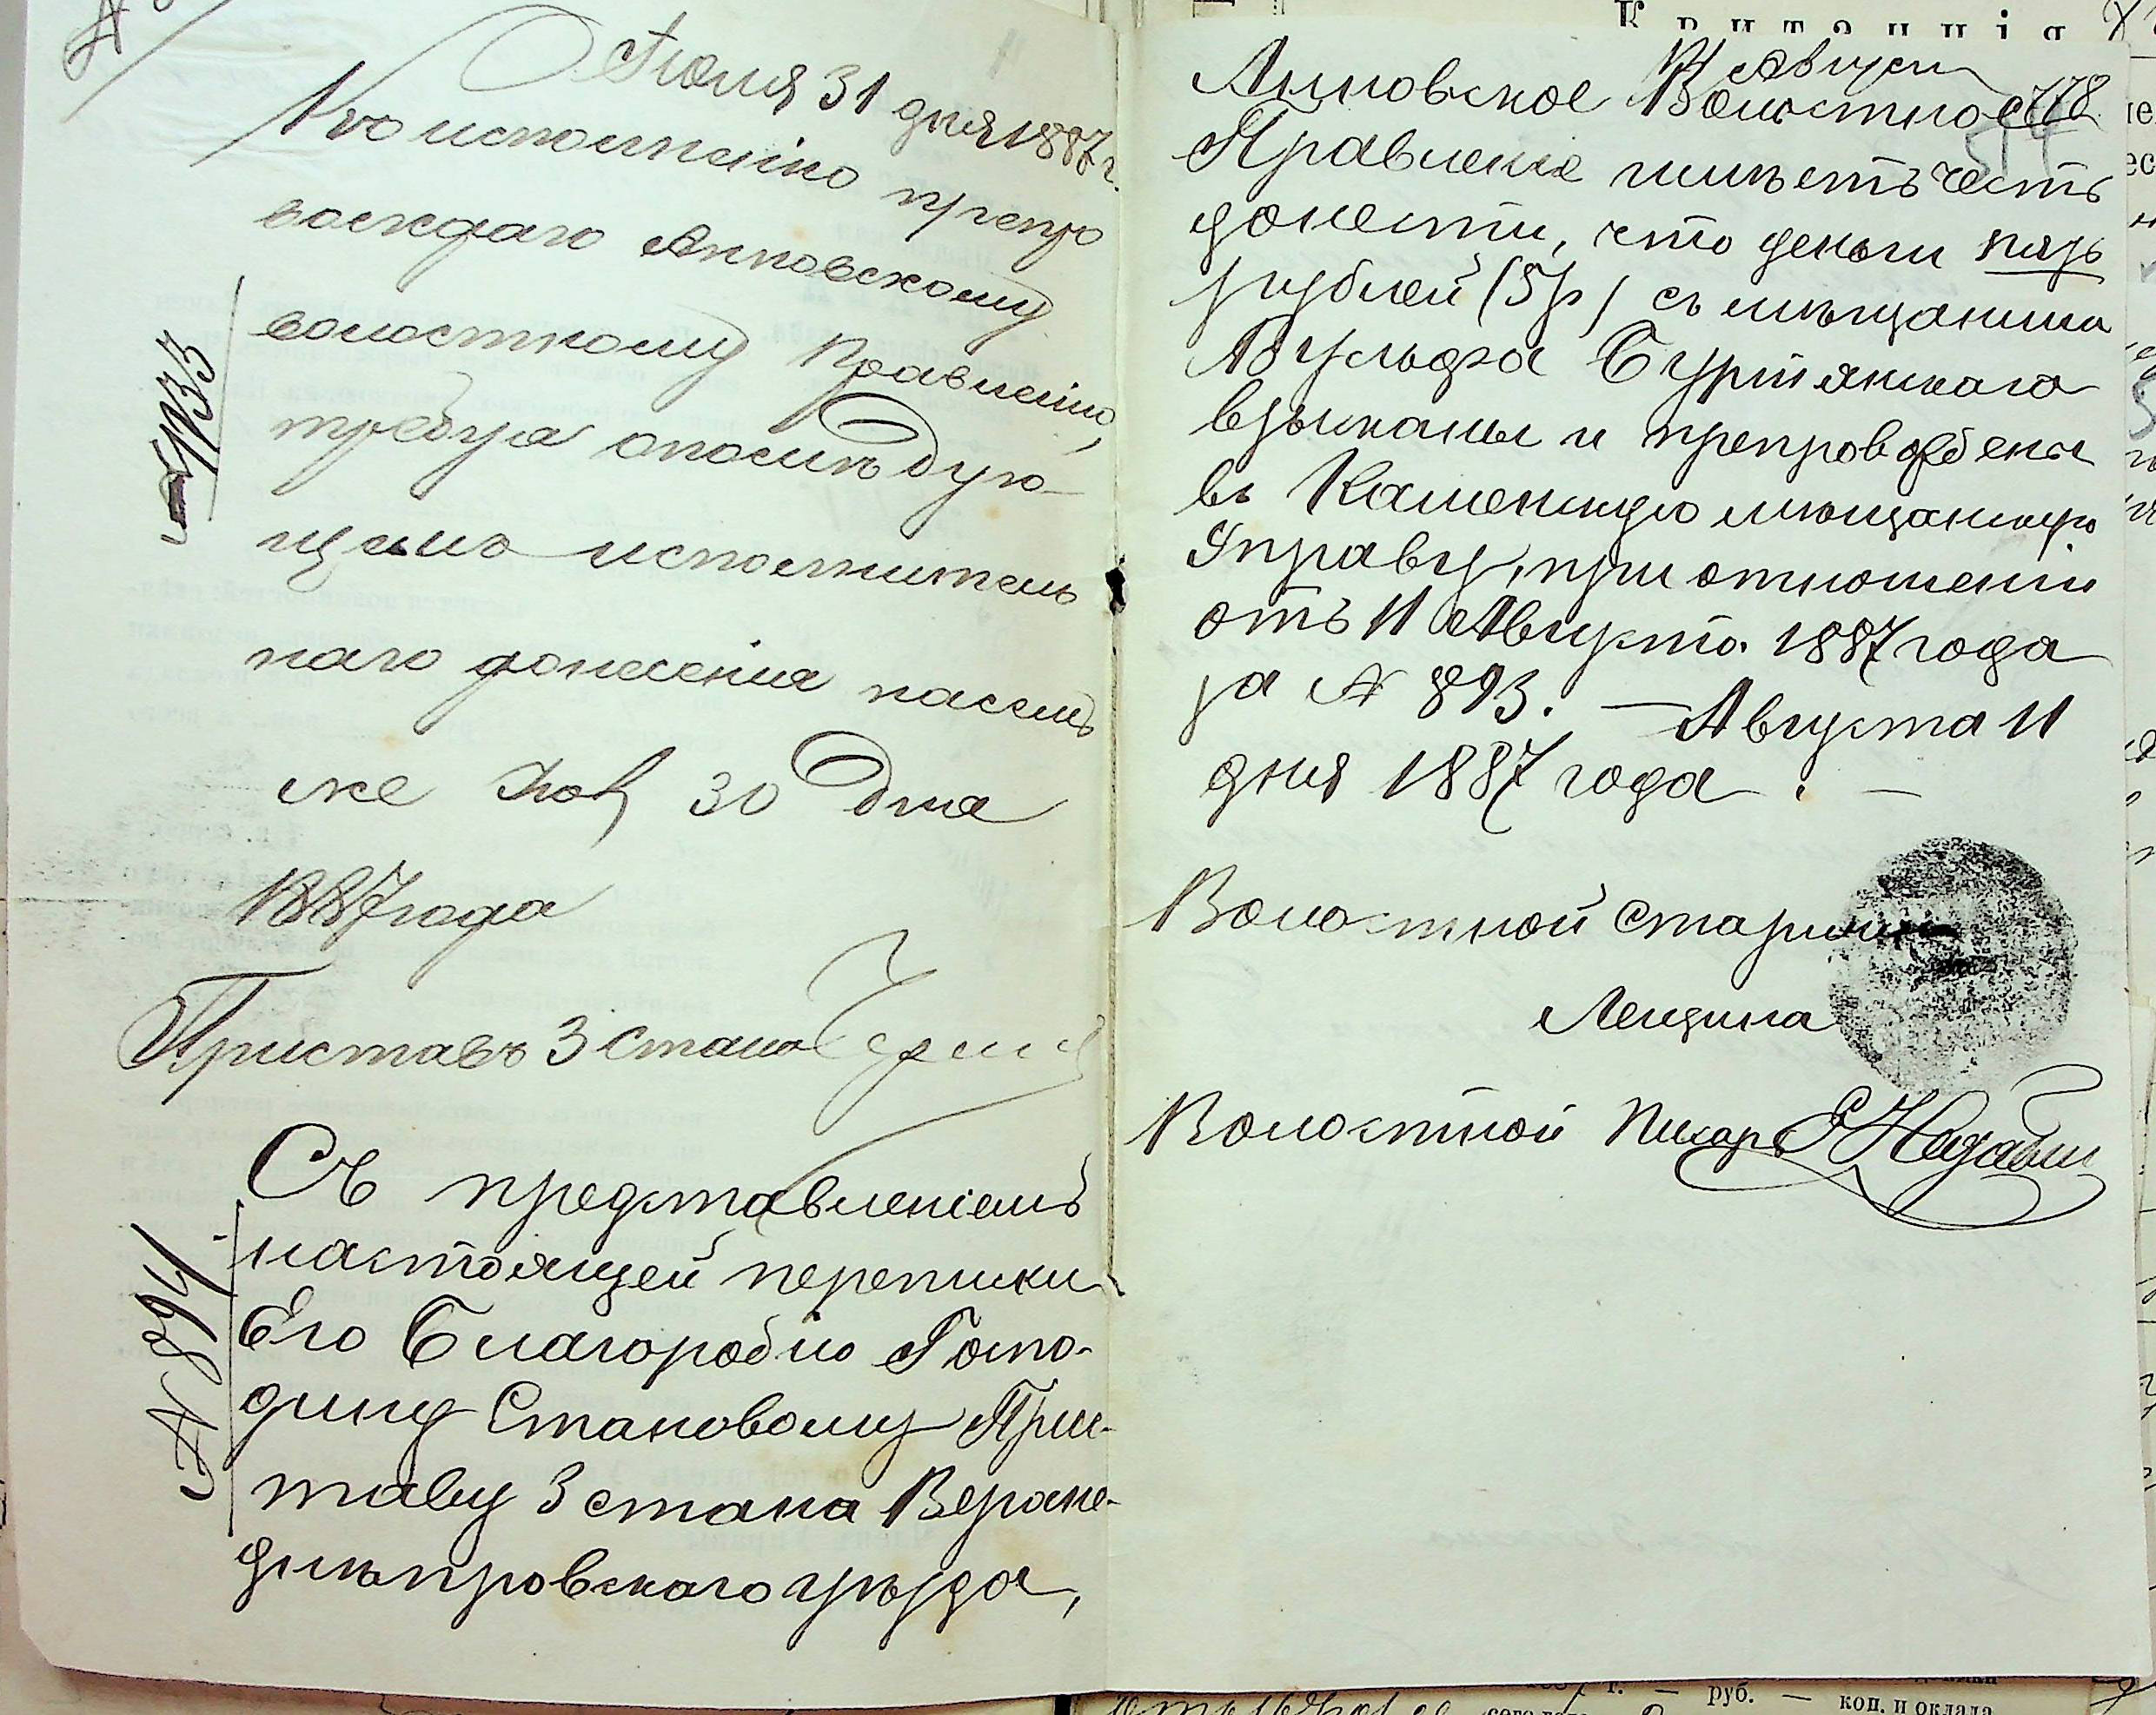 Июля 31 дня 1887 г.
Къ исполненію препро
вождаю Анновскому
волостному Правленію,
требуя о послѣдую-
щемъ исполнитель
наго донесенія насемъ
же 30 дня
1887 года
Приставъ 3 стана
№ 894
Съ представленіемъ
настоящей переписки
Его Благородію Госпо-
дину Становому При-
таву 3 стана Верхне-
днѣпровскаго уѣзда,
11 Августа
Анновское Волостное 778
Правленіе имѣетъ честь
донести, что деньги пять
рублей (5 р) съ мѣщанина
Вульфа Буршянскаго
взысканы и препровождены
въ Каменскую мѣщанскую
Управу, при отношеніи
отъ 11 Августа 1887 года
за № 893. — Августа 11
дня 1887 года. —
Волостной Старшина
Лещина
Волостной Писарь
руб. — коп. и оклада